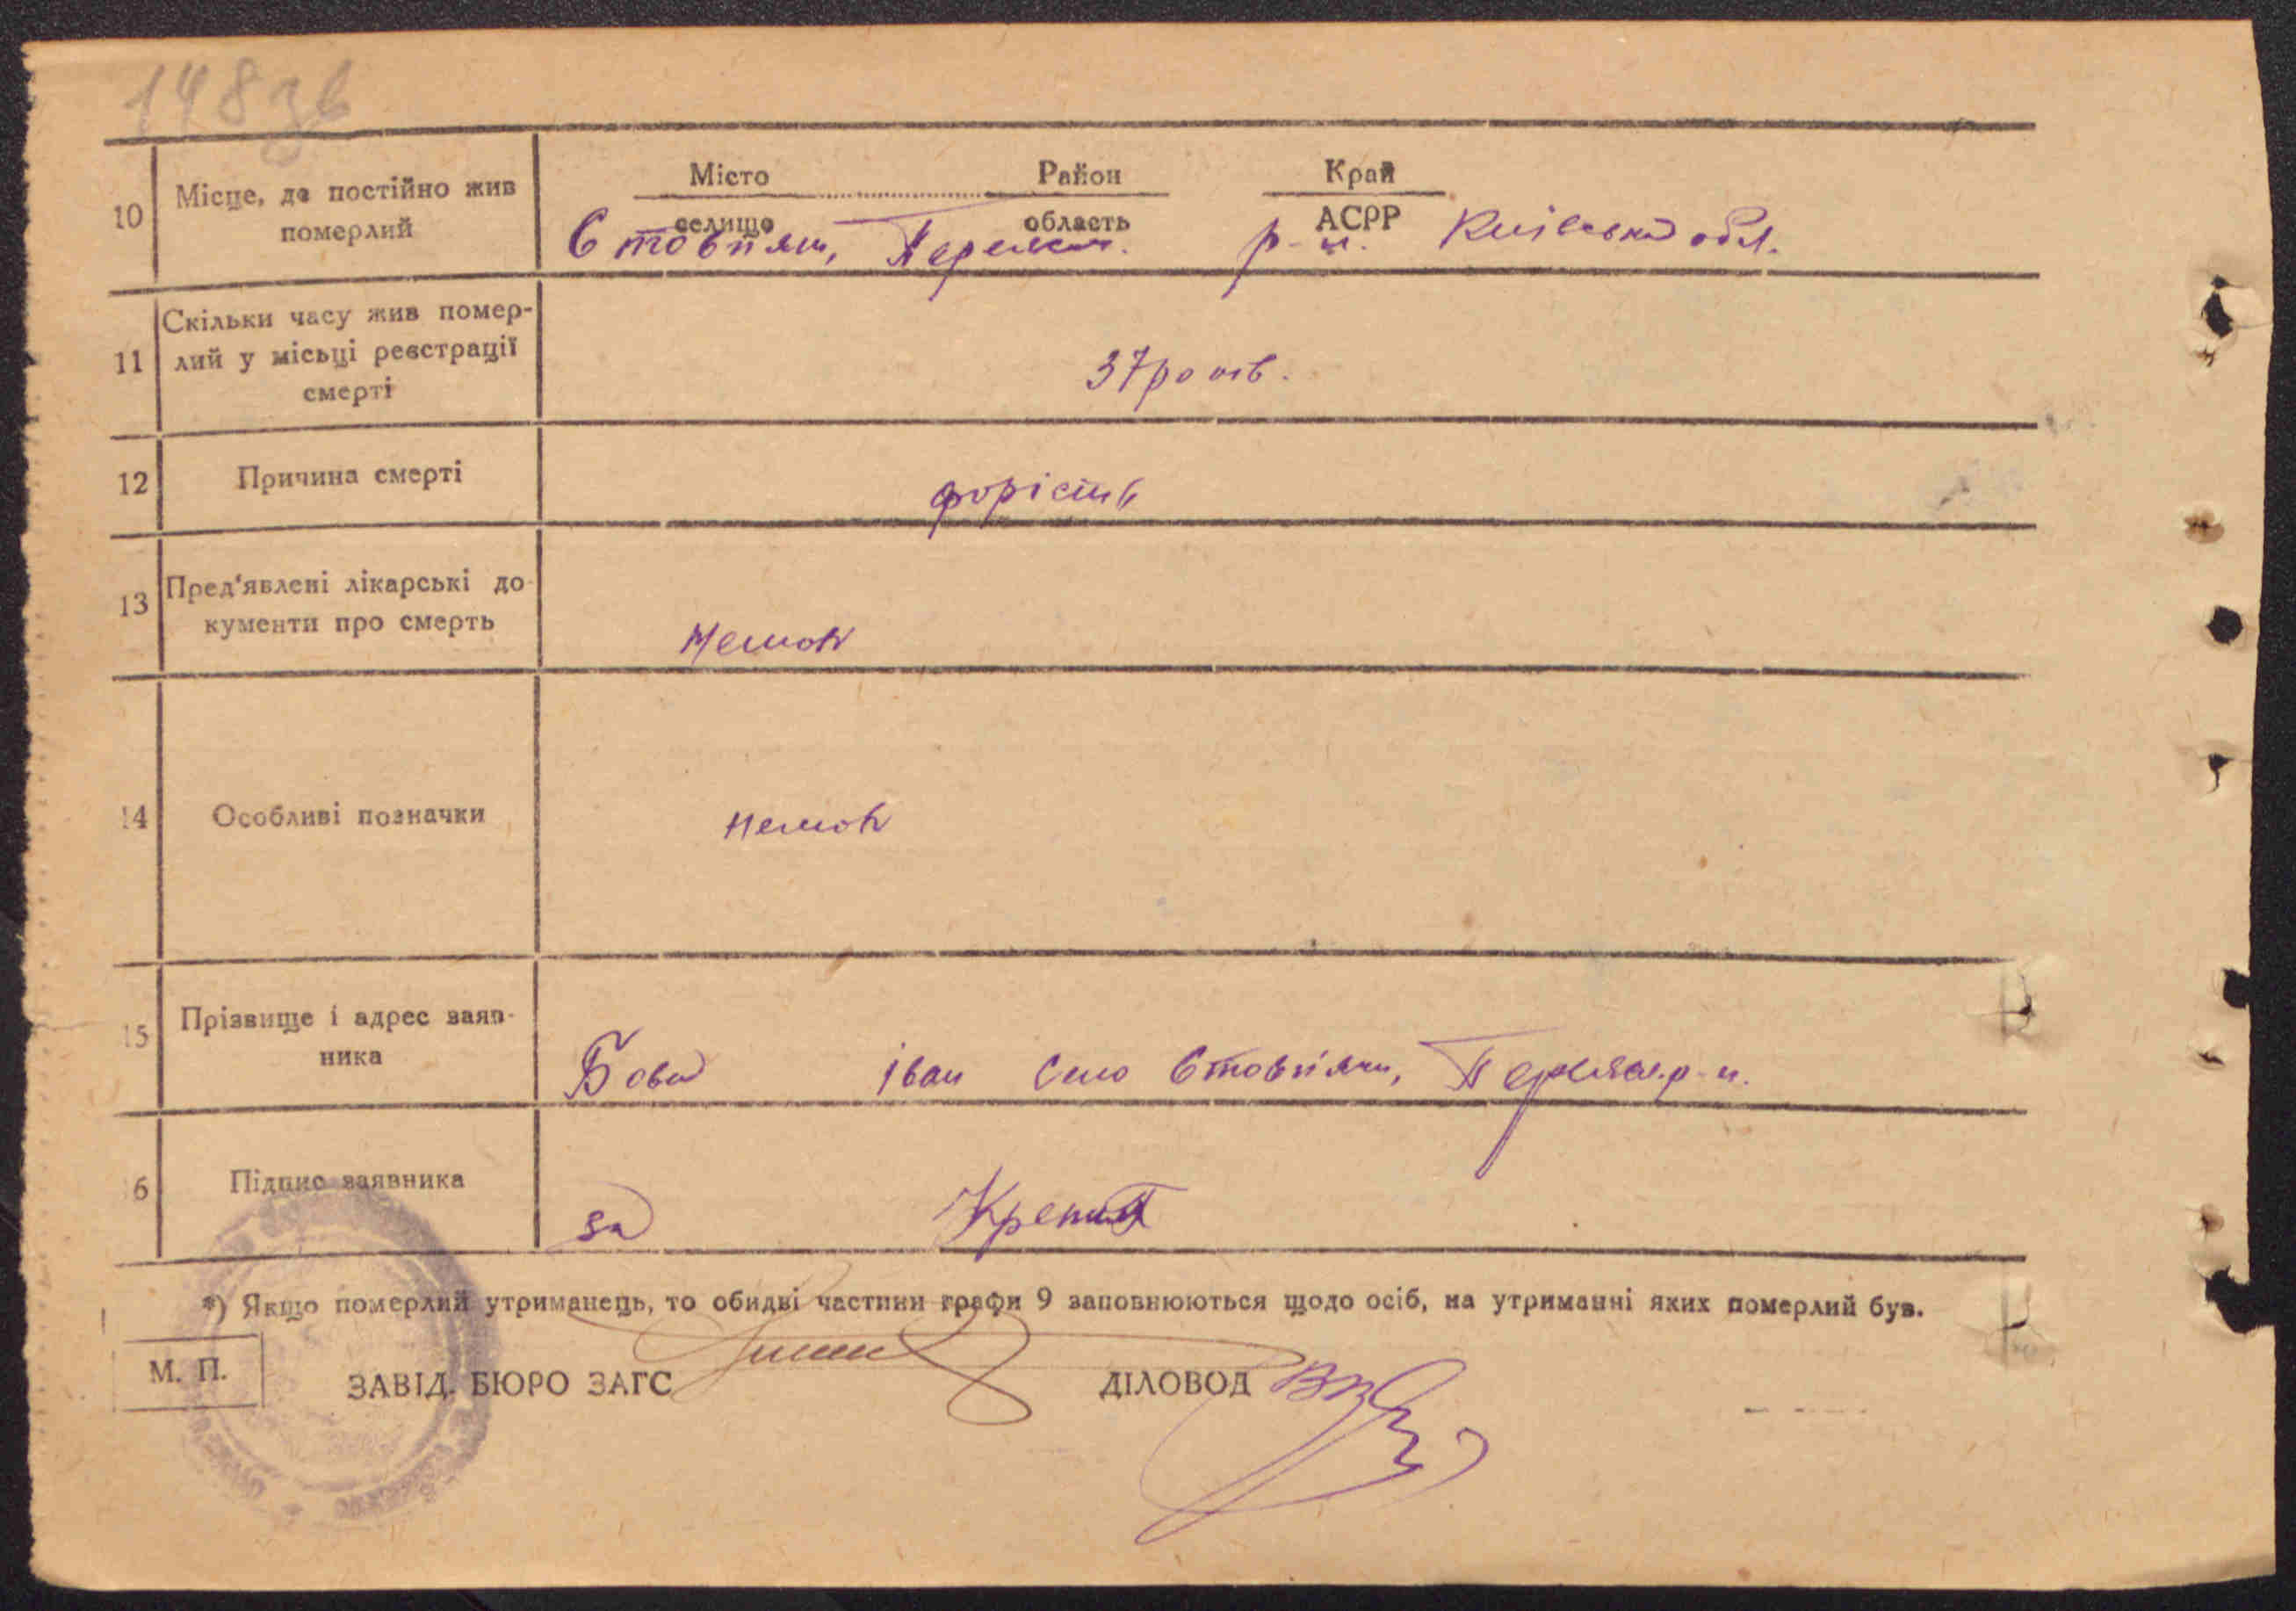 148 зв
10 Місце, де постійно жив померлий
Місто Район Край
селище область АСРР
Стовпяги, Переясл. р-н. Київська обл.
11 Скільки часу жив помер-
лий у місьці реєстрації
смерті
37 років.
12 Причина смерті
13 Пред'явлені лікарські до-
кументи про смерть
Немає
14 Особливі позначки
немає
15 Прізвище і адрес заяв-
ника
Бова Іван село Стовпяги, Переясл. р-н.
16 Підпис заявника
за
*) Якщо померлий утриманець, то обидві частини графи 9 заповнюються щодо осіб, на утриманні яких померлий був.
М. П.
ЗАВІД. БЮРО ЗАГС ДІЛОВОД